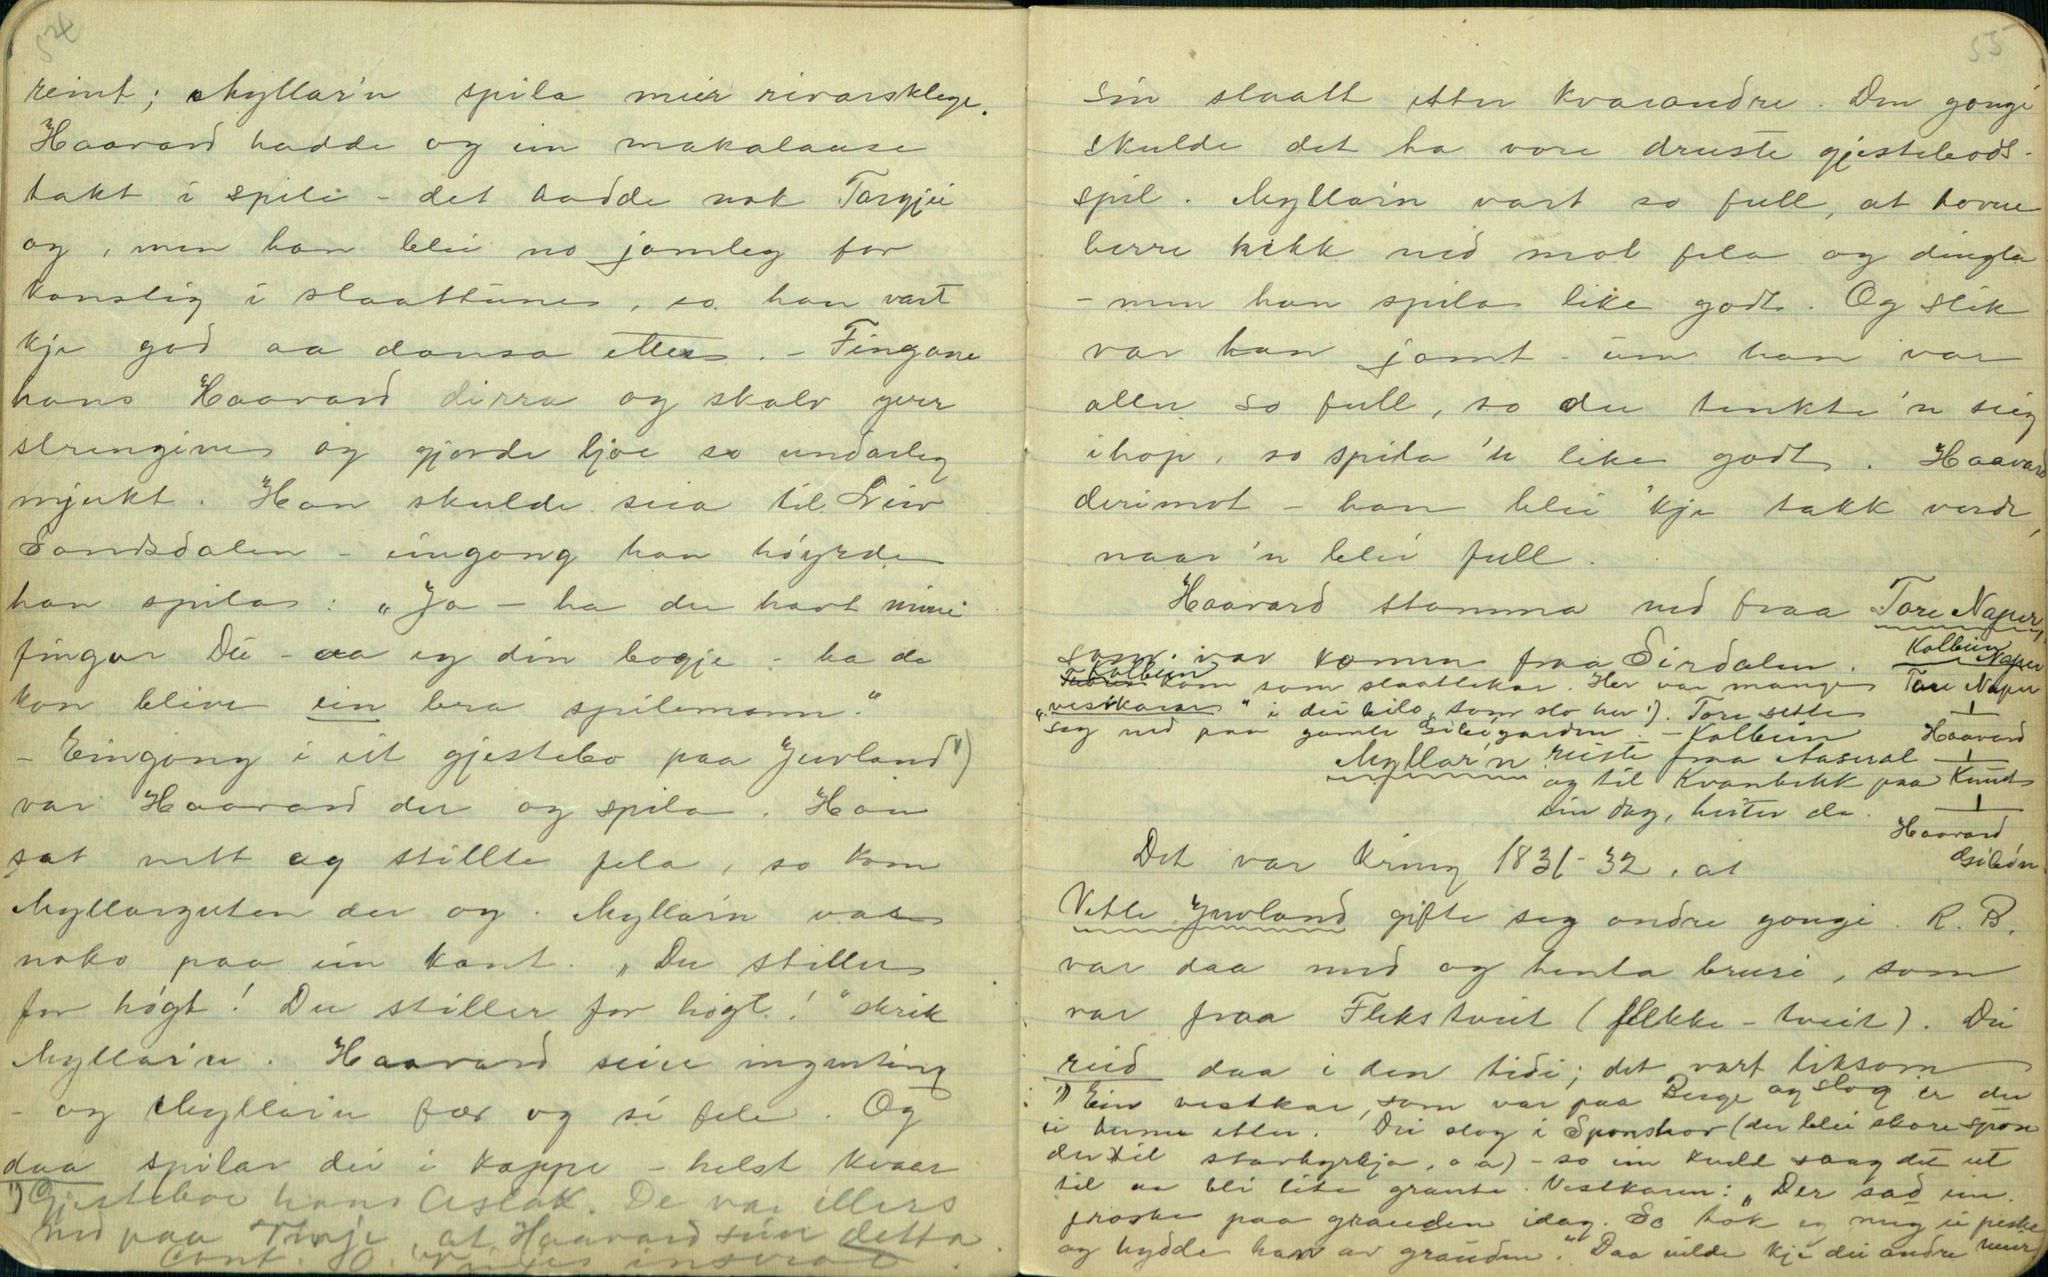 54
reint; Myllar'n spila meir rivarsklege.
Haavard hadde og ein makalause
takt i spele - det hadde nok Targjei
og, men han blei no jamleg for
konstig i slaattune, so han vart
kje god aa dansa etter. - Fingane
hans Haavard dirra og skalv yver
strengine og gjorde ljoe so undarleg
mjukt. Han skulde seia til
Sandsdalen - eingong han høyrde
han spila: "Ja - ha du havt mine
fingar Du - aa eg din bogje - ha de
kon blive ein bra spilemann."
- Eingong i eit gjestebo paa Juvland 1)
var Haavard der og spila. Han
sat nett og stillte fela, so kom
Myllarguten der og. Myllar'n var
noko paa ein kant. "Du stiller
for høgt! Du stiller for høgt!" skrik
Myllar'n. Haavard seie ingenting
- og Myllar'n fær og si fele. Og
daa spilar dei i kappe - helst kvaer
1) Gjesteboe hans Aslak. De var ellers
ned paa at Haavard
55
sin slaatt etter kvarandre. Den gongi
skulde det ha vore druste gjestebods-
spil. Myllar'n vart so full, at hovue
berre hekk ned mot fela og dingla
- men han spila like godt. Og slik
var han jamt - um han var
aller so full, so du tenkte 'n seig
ihop, so spila 'n like godt. Haavard
derimot - han blei 'kje takk verdt,
naar 'n blei full.
Haavard stamma ned fraa Tore Naper,
som var komen fraa Sirdalen. Kolbein Naper
Kolbein kom som slaattekar. Her var mange Tore Naper
"vestkarar" i dei bilo, som slo her 1). Tore sette
seg ned paa gamle Gibøgarden. - Kolbein Haavard
Myllar'n reiste fraa Aaseral
og til Kvanbekk paa Knut
ein dag, heiter de. Haavard
Gibøn
Det var kring 1831-32, at
Vetle Juvland gifte seg andre gongi. R. B.
var daa med og henta bruri, som
var fraa Flekstveit (Flekke-tveit). Dei
reid daa i den tidi; det vart liksom
1) Ein vestkar, som var paa Berge og slog er der
ei etter. Dei slog i (der blei skore spon
der til starkyrkja, o a) - so ein kveld saag det ut
til aa bli lite graute. Vestkaren: "Der sad ein
froske paa grauden idag. So tok eg meg ei peiske
og hydde han av grauden." Daa vilde kje dei andre meir.